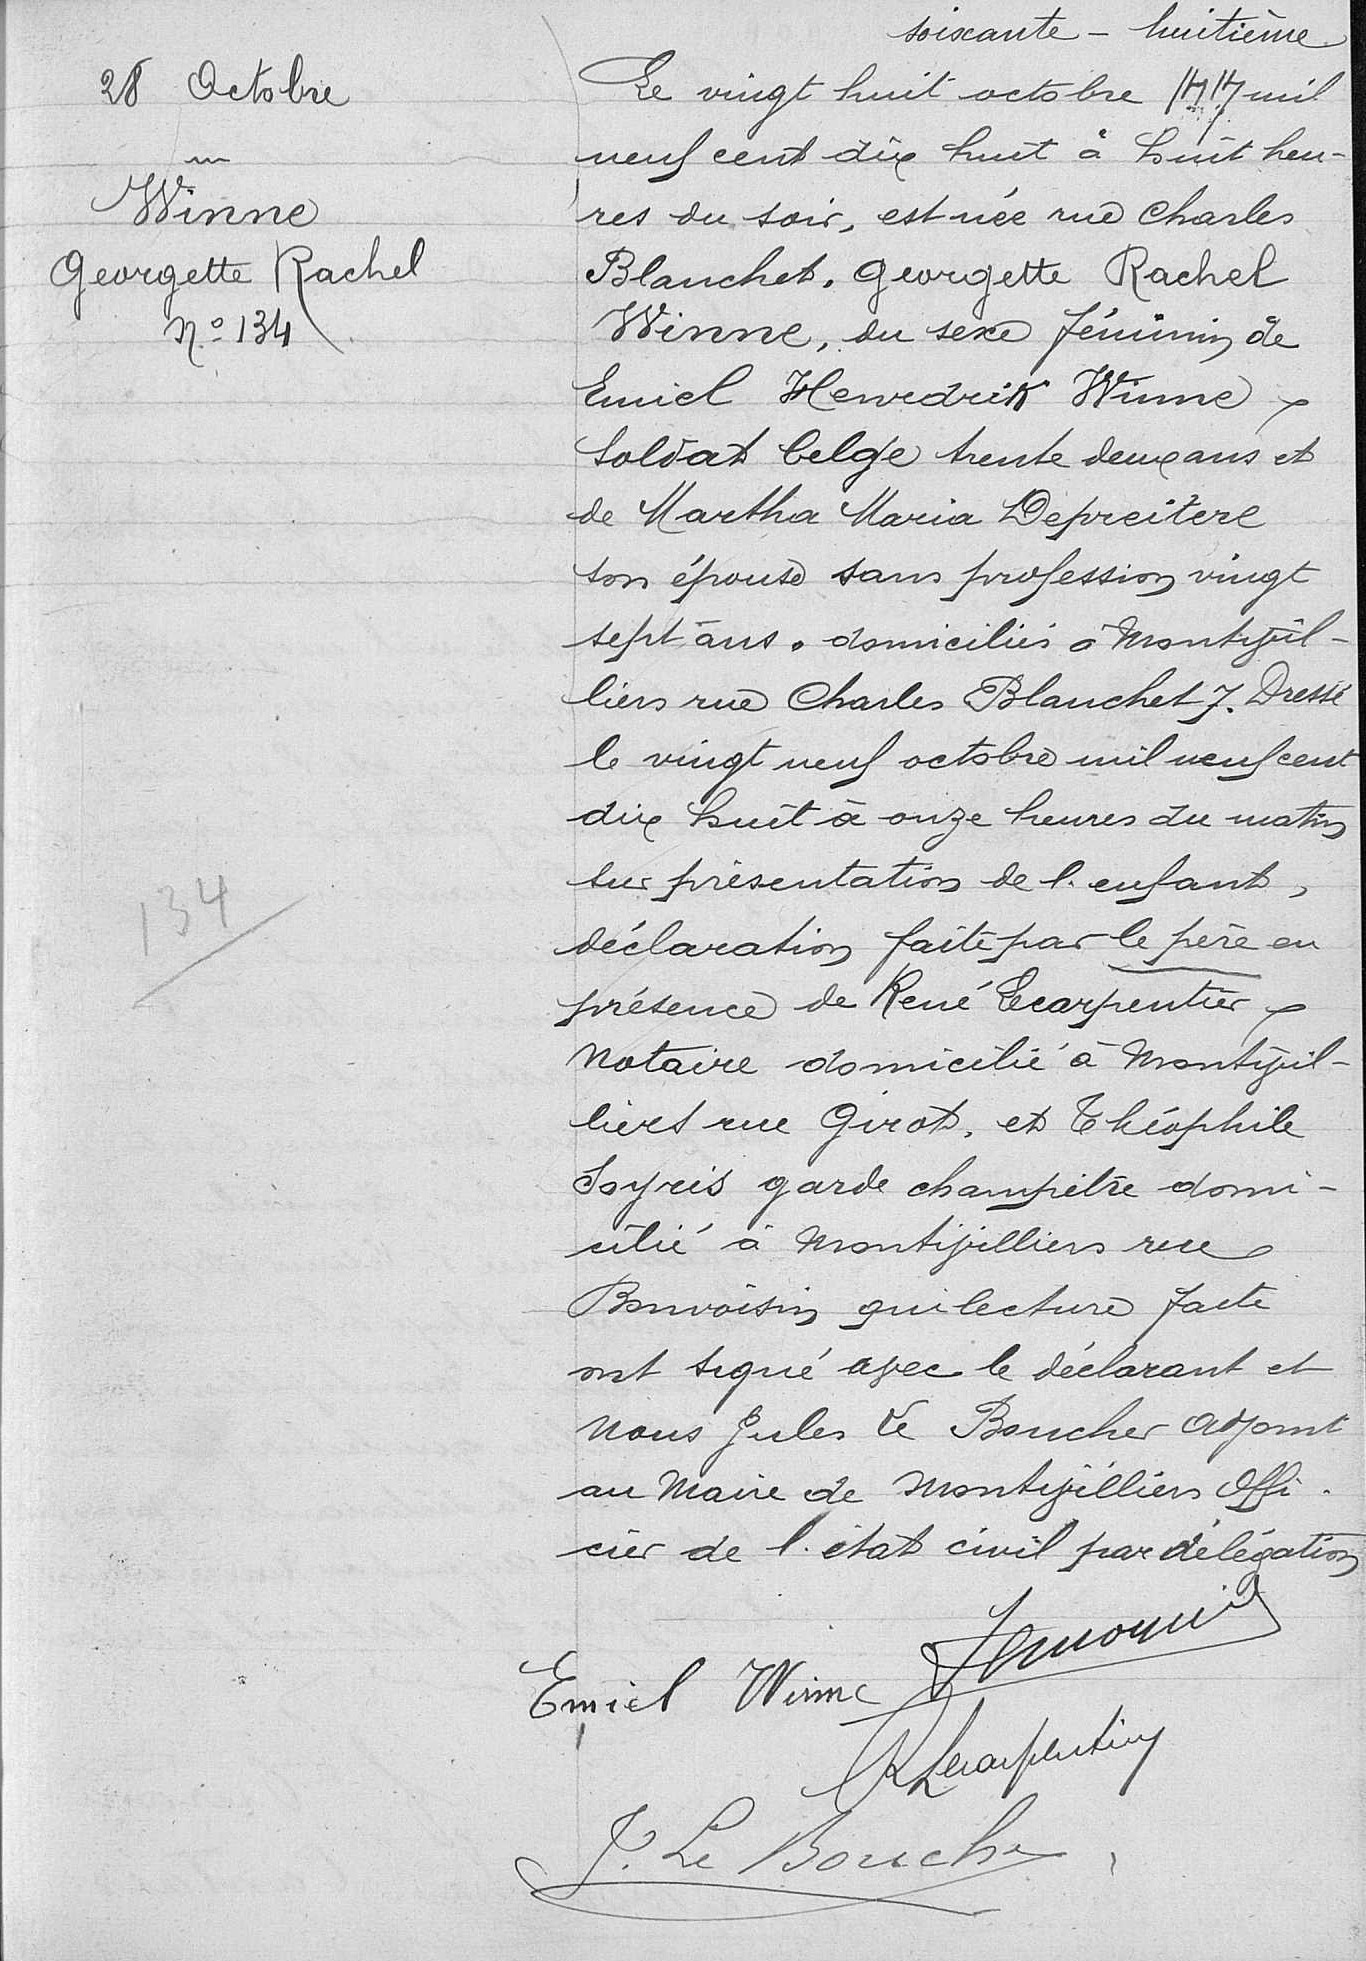 soixante - huitième
28 Octobre
Winne
Georgette Rachel
N° 134
Le vingt huit octobre mil
neuf cent dix huit à huit heu-
res du soir, est née rue Charles
Blanchet, Georgette Rachel
Winne, du sexe féminin de
Emiel Henredrik Winne
soldat belge trente deux ans et
de Martha Maria Depreitere
son épouse sans profession vingt
sept ans. domiciliés à Montivil-
liers rue Charles Blanchet 7. Dressé
le vingt neuf octobre mil neuf cent
dix huit à onze heures du matin
sur présentation de l'enfant,
déclaration faite par le père en
présence de René Lecarpentier
Notaire domicilié à Montivil-
liers rue Girot, et Théophile
garde champêtre domi-
cilié à Montivilliers rue
Bonvoisin qui lecture faite
ont signé avec le déclarant et
Nous Jules Le Boucher adjoint
au Maire de Montivilliers Offi-
cier de l'état civil par délégation
134
Emiel Winne
R Lecarpentier
J. Le Boucher